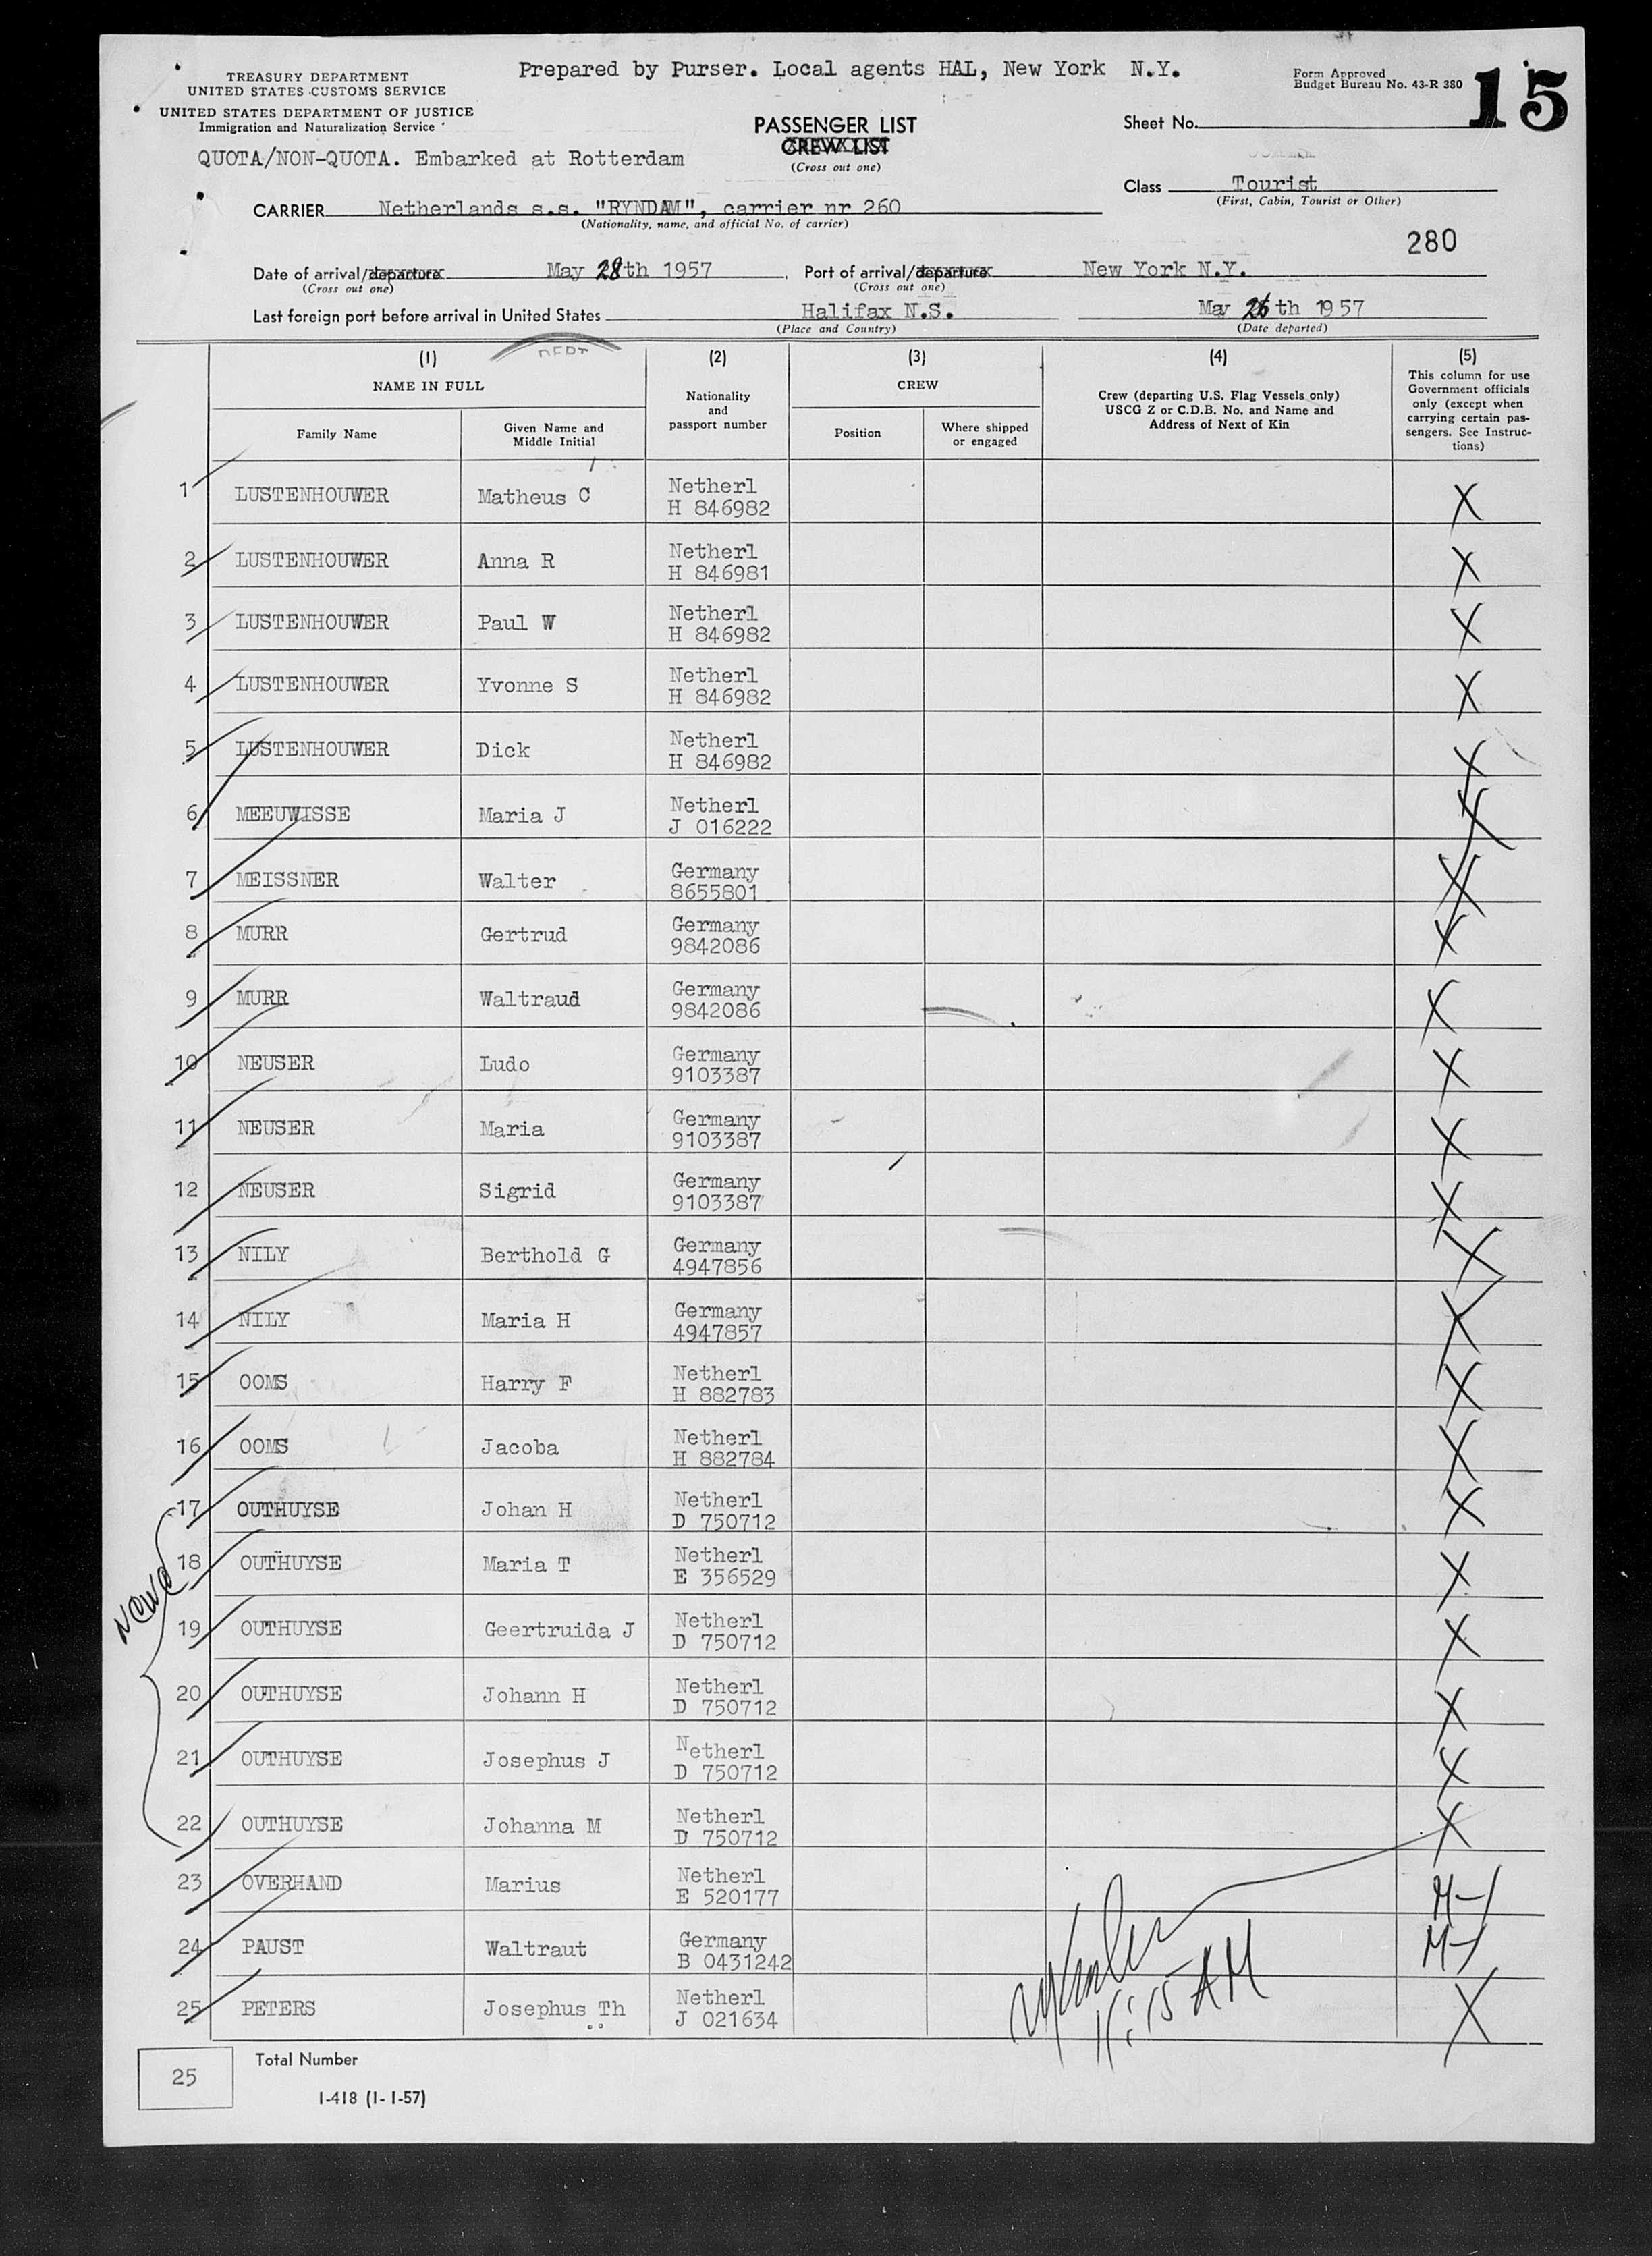 Prepared by Purser. Local agents HAL, New York N.Y.
TREASURY DEPARTMENT
UNITED STATES CUSTOMS SERVICE
UNITED STATES DEPARTMENT OF JUSTICE
Immigration and Naturalization Service
Form Approved
Budget Bureau No. 43-R 380
15
PASSENGER LIST
CREW LIST
(Cross out one)
Sheet No.
QUOTA/NON-QUOTA. Embarked at Rotterdam
Class Tourist
(First, Cabin, Tourist or Other)
CARRIER Netherlands s.s. "RYNDAM", carrier nr 260
(Nationality, name, and official No. of carrier)
280
Date of arrival/departure May 28th 1957, Port of arrival/departure New York N.Y.
(Cross out one) (Cross out one)
Last foreign port before arrival in United States Halifax N.S. May 26th 1957
(Place and Country) (Date departed)
DEPT
(1) (2) (3) (4) (5)
NAME IN FULL
Family Name
Given Name and
Middle Initial
Nationality
and
passport number
CREW
Position
Where shipped
or engaged
Crew (departing U.S. Flag Vessels only)
USCG Z or C.D.B. No. and Name and
Address of Next of Kin
This column for use
Government officials
only (except when
carrying certain pas-
sengers. See Instruc-
tions)
1 LUSTENHOUWER Matheus C Netherl H 846982 X
2 LUSTENHOUWER Anna R Netherl H 846981 X
3 LUSTENHOUWER Paul W Netherl H 846982 X
4 LUSTENHOUWER Yvonne S Netherl H 846982 X
5 LUSTENHOUWER Dick Netherl H 846982 X
6 MEEUWISSE Maria J Netherl J 016222 X
7 MEISSNER Walter Germany 8655801 X
8 MURR Gertrud Germany 9842086 X
9 MURR Waltraud Germany 9842086 X
10 NEUSER Ludo Germany 9103387 X
11 NEUSER Maria Germany 9103387 X
12 NEUSER Sigrid Germany 9103387 X
13 NILY Berthold G Germany 4947856 X
14 NILY Maria H Germany 4947857 X
15 OOMS Harry F Netherl H 882783 X
16 OOMS Jacoba Netherl H 882784 X
17 OUTHUYSE Johan H Netherl D 750712 X
18 OUTHUYSE Maria T Netherl E 356529 X
19 OUTHUYSE Geertruida J Netherl D 750712 X
20 OUTHUYSE Johann H Netherl D 750712 X
21 OUTHUYSE Josephus J Netherl D 750712 X
22 OUTHUYSE Johanna M Netherl D 750712 X
23 OVERHAND Marius Netherl E 520177 M-1
24 PAUST Waltraut Germany B 0431242 M-1
25 PETERS Josephus Th Netherl J 021634 X
11:15 AM
25
Total Number
I-418 (1-1-57)